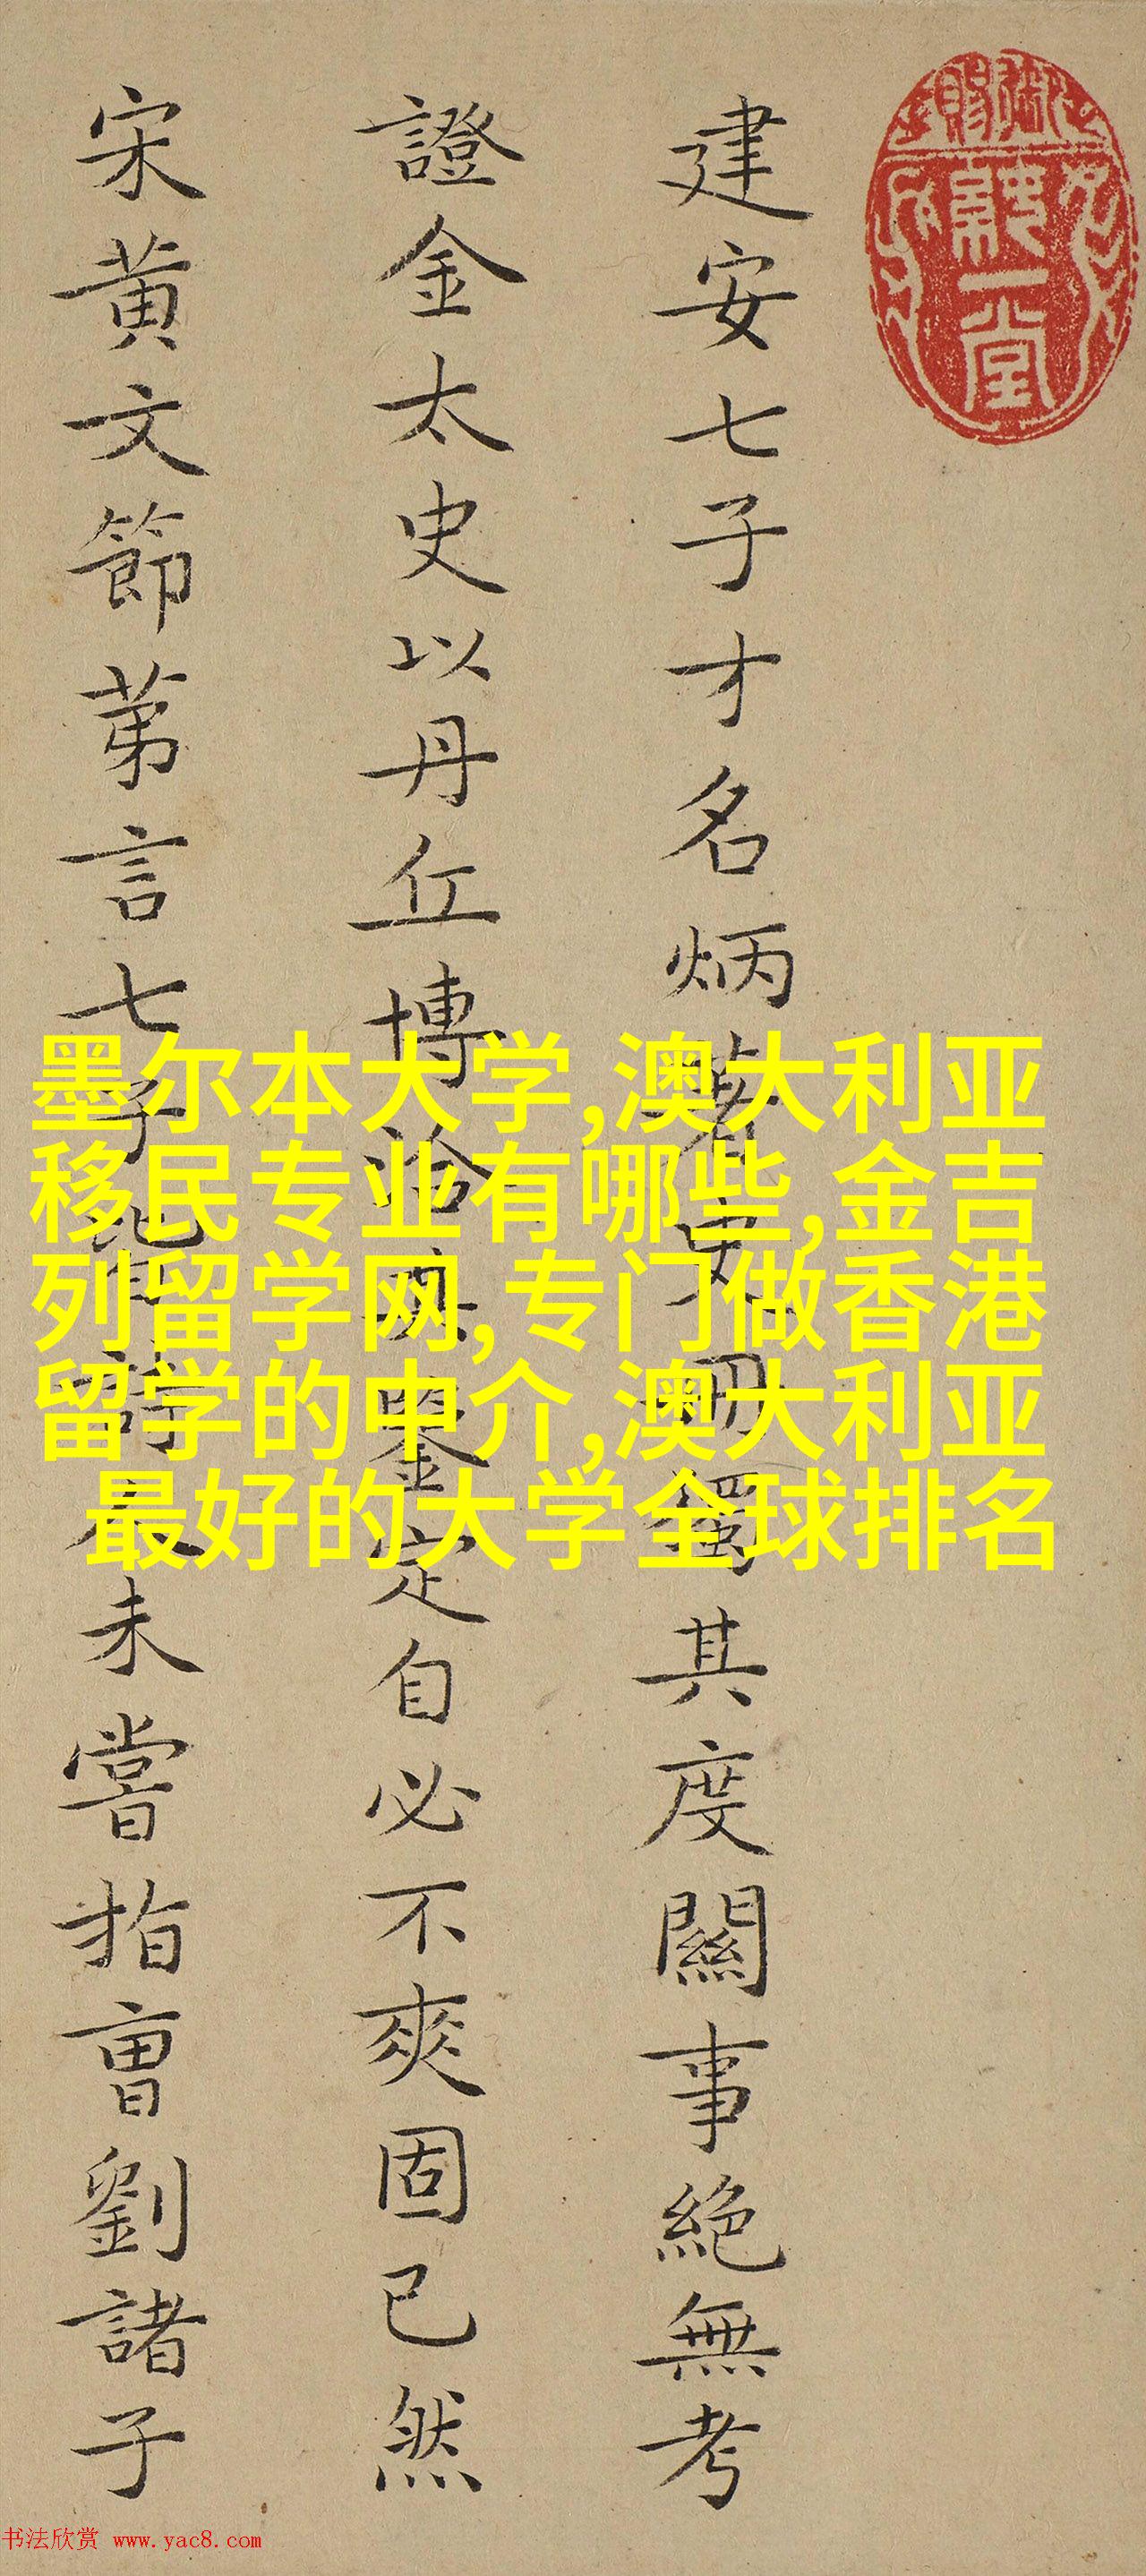 建安七子才名炳著史冊獨其度關事絶無考
證金太史以丹丘博洽鑒定自必不爽固已然
宋黄文節苐言七子皆詩人未嘗指曹劉諸子
墨尔本大学,澳大利亚
移民专业有哪些,金吉
列留学网,专门做香港
留学的中介,澳大利亚
最好的大学全球排名
书法欣赏 www.yac8.com